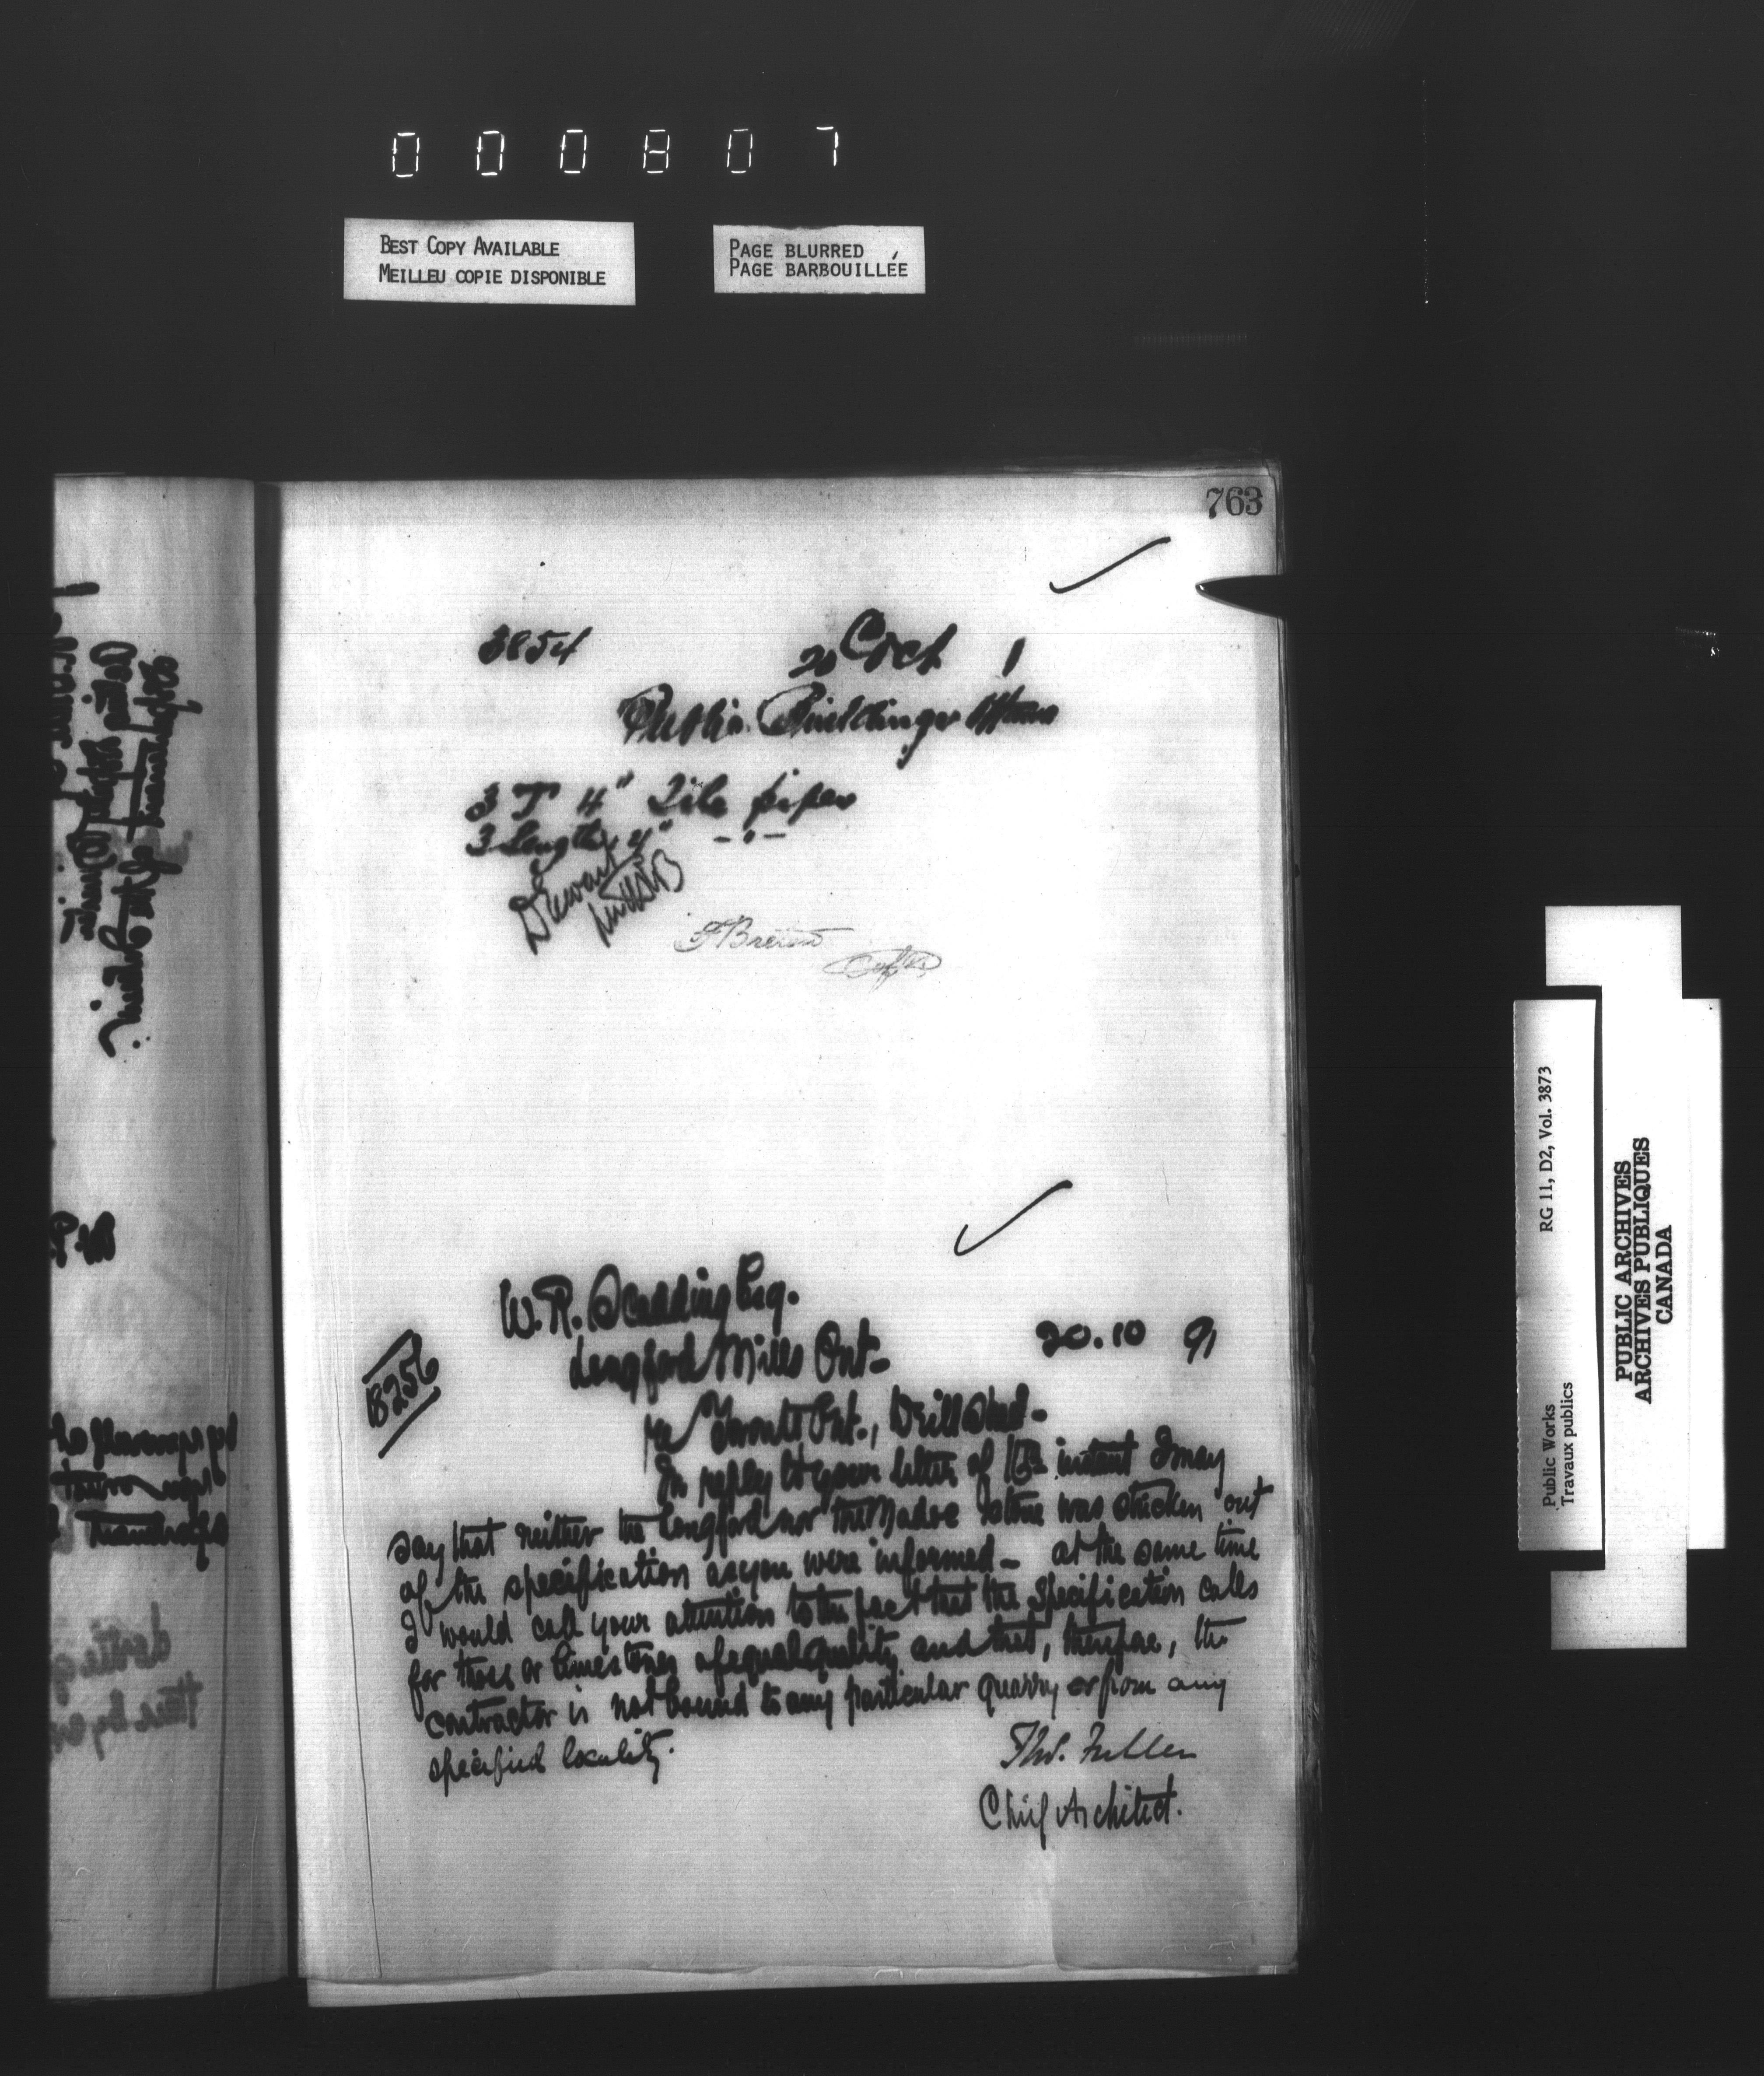 000807
BEST COPY AVAILABLE
MEILLEU COPIE DISPONIBLE
PAGE BLURRED
PAGE BARBOUILLÉE
763
3854
20 Oct 1
Public Buildings Ottawa
3 T 4" Tile pipes
3 Lengths 4" -"-
D Ewart
W. R. Scadding Esq.
Longford Mills Ont-
20.10 91
B256
re Toronto Ont., Drill Shed-
In reply to your letter of 16th instant I may
say that neither the Longford nor the Madoc stone was stricken out
of the specification as you were informed- at the same time
I would call your attention to the fact that the specification calls
for those or limestones of equal quality and that, therefore, the
contractor is not bound to any particular quarry or from any
specified locality.
Thos. Fuller
Chief Architect.
Public Works
Travaux publics
RG 11, D2, Vol. 3873
PUBLIC ARCHIVES
ARCHIVES PUBLIQUES
CANADA